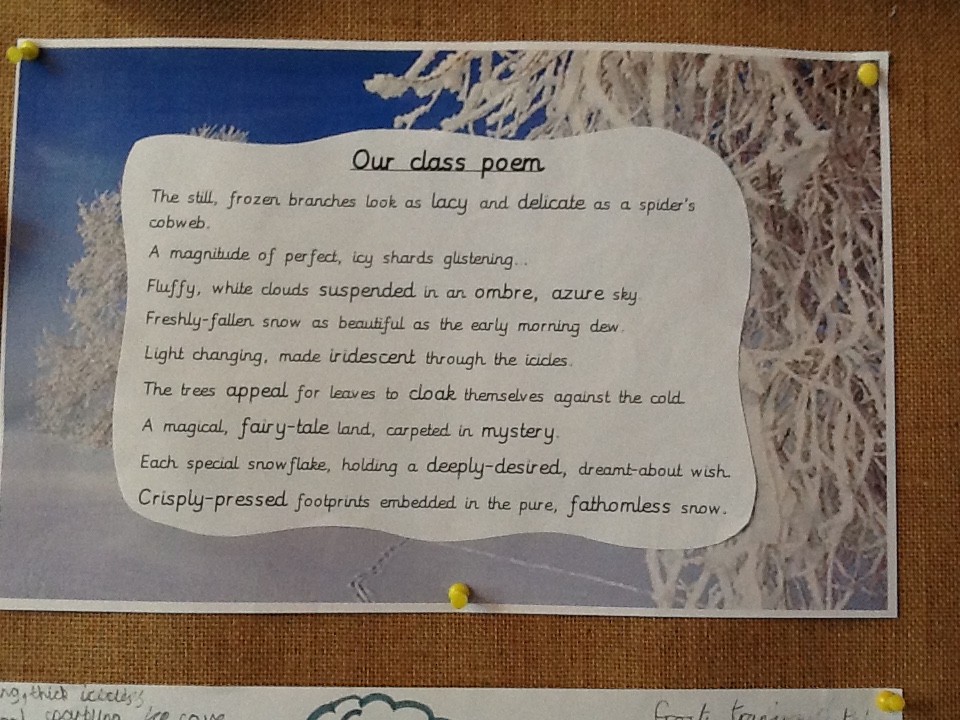 Our class poem
The still, frozen branches look as lacy and delicate as a spider's
cobweb.
A magnitude of perfect, icy shards glistening...
Fluffy, white clouds suspended in an ombre, azure sky.
Freshly-fallen snow as beautiful as the early morning dew.
Light changing, made iridescent through the icicles.
The trees appeal for leaves to cloak themselves against the cold.
A magical, fairy-tale land, carpeted in mystery.
Each special snowflake, holding a deeply-desired, dreamt-about wish.
Crisply-pressed footprints embedded in the pure, fathomless snow.
thick
sparkling